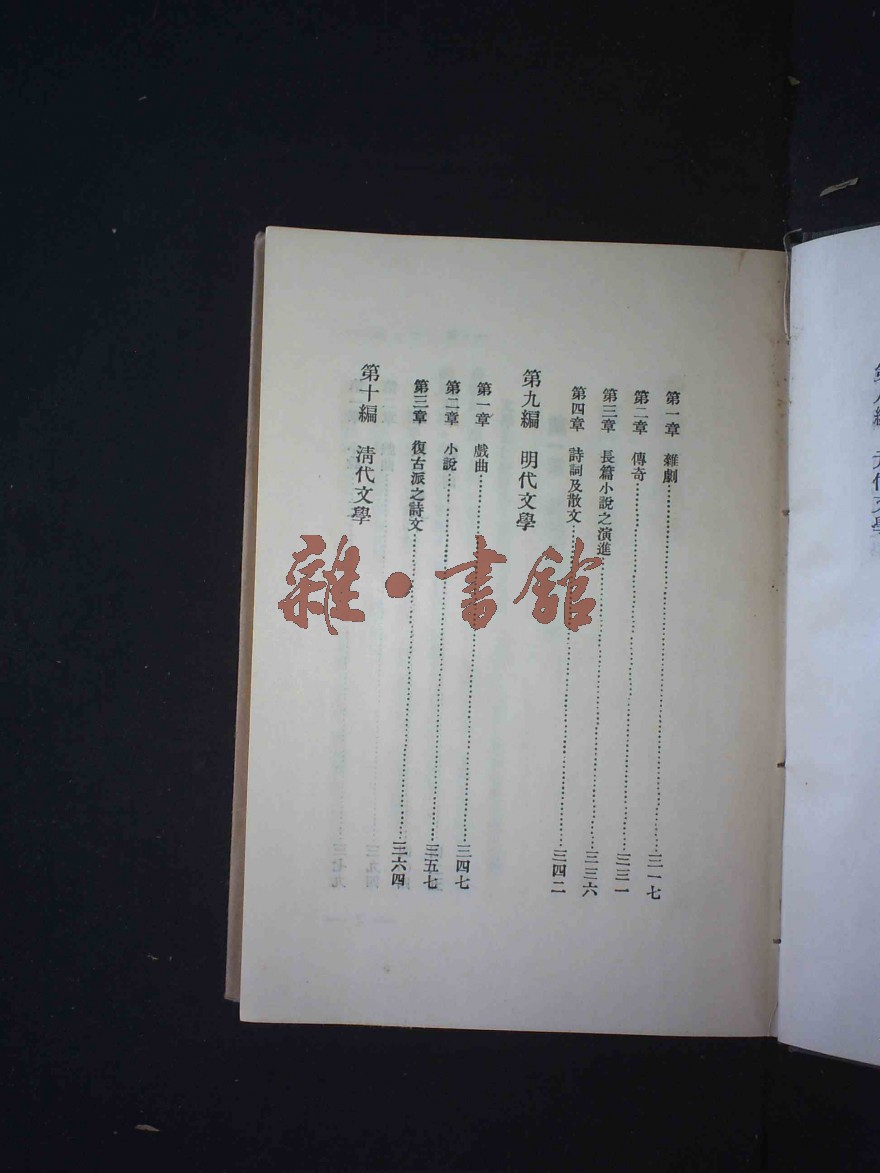 第八編 元代文學
第一章 雜劇……三一七
第二章 傳奇……三三一
第三章 長篇小說之演進……三三六
第四章 詩詞及散文……三四二
第九編 明代文學
第一章 戲曲……三四七
第二章 小說……三五七
第三章 復古派之詩文……三六四
第十編 清代文學
雜·書館